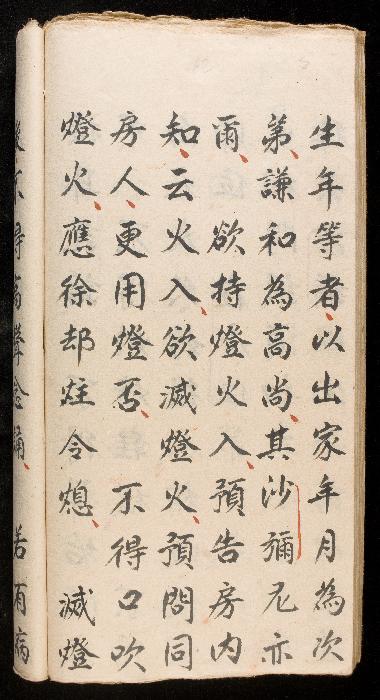 生年等者以出家年月為次
弟謙和為高尚其沙彌尼亦
爾 欲持燈火入預告房内
知云火入欲滅燈火預問同
房人更用燈否 不得口吹
燈火應徐却炷令熄 滅燈
後不得高聲念誦 若有病